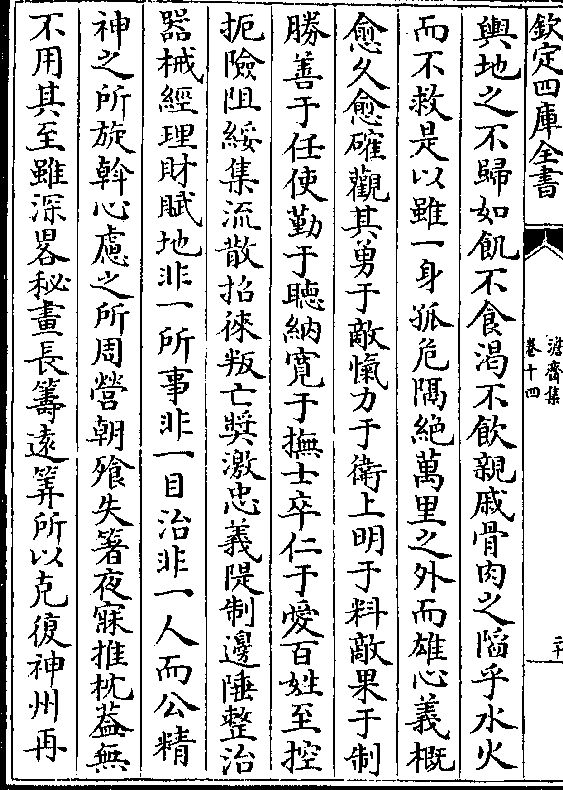 欽定四庫全書
澹齋集
卷十四
二十
輿地之不歸如飢不食渴不飲親戚骨肉之䧟乎水火
而不救是以雖一身孤危隅絶萬里之外而雄心義概
愈久愈確觀其勇于敵愾力于衛上明于料敵果于制
勝善于任使勤于聴納寛于撫士卒仁于愛百姓至控
扼險阻綏集流散招徠叛亡奨激忠義隄制邊陲整治
器械經理財賦地非一所事非一目治非一人而公精
神之所旋斡心慮之所周營朝飱失箸夜寐推枕葢無
不用其至雖深畧秘畫長籌逺筭所以克復神州再